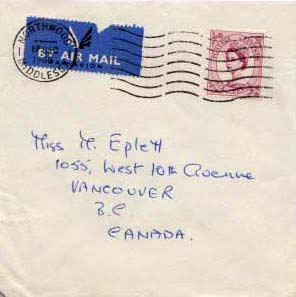 NORTHWOOD
MIDDLESEX
BY AIR MAIL
PAR AVION
Miss M. Eplett
1055, West 10th Avenue
VANCOUVER
B.C.
CANADA.